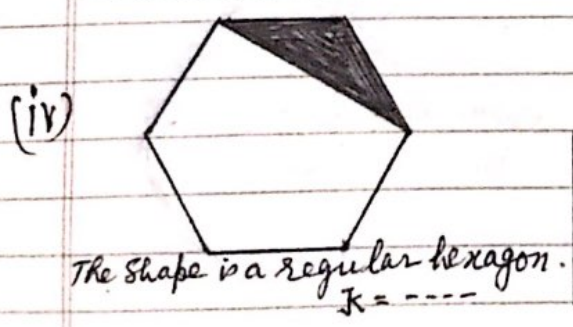 (iv)
The shape is a regular hexagon.
k = ----